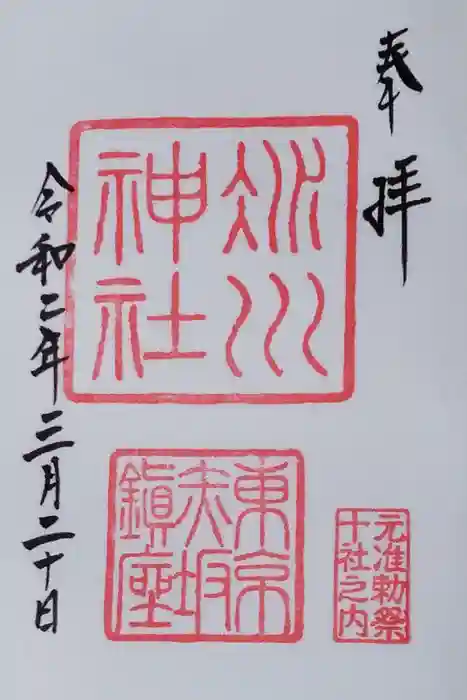 奉拝
氷川
神社
東京
赤坂
鎮座
元准勅祭
十社之内
令和二年三月二十日